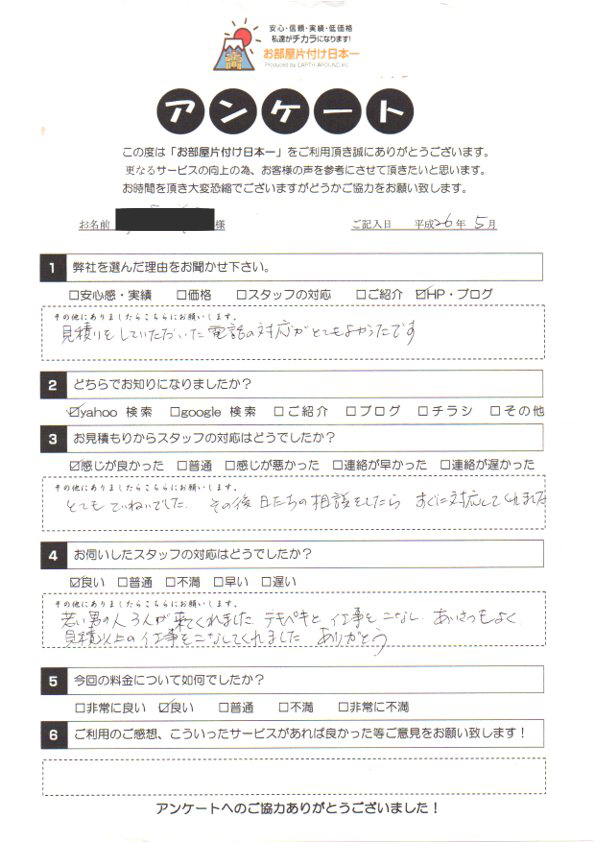 安心・信頼・実績・低価格
私達がチカラになります!
お部屋片付け日本一
Produced by EARTH AROUND.inc
アンケート
この度は「お部屋片付け日本一」をご利用頂き誠にありがとうございます。
更なるサービスの向上の為、お客様の声を参考にさせて頂きたいと思います。
お時間を頂き大変恐縮でございますがどうかご協力をお願い致します。
お名前 様 ご記入日 平成26年 5月
1 弊社を選んだ理由をお聞かせ下さい。
□安心感・実績 □価格 □スタッフの対応 □ご紹介 ☑HP・ブログ
その他にありましたらこちらにお願いします。
見積りをしていただいた電話の対応がとてもよかったです
2 どちらでお知りになりましたか?
☑yahoo 検索 □google 検索 □ご紹介 □ブログ □チラシ □その他
3 お見積もりからスタッフの対応はどうでしたか?
☑感じが良かった □普通 □感じが悪かった □連絡が早かった □連絡が遅かった
その他にありましたらこちらにお願いします。
とてもていねいでした その後日たちの相談をしたら すぐに対応してくれました
4 お伺いしたスタッフの対応はどうでしたか?
☑良い □普通 □不満 □早い □遅い
その他にありましたらこちらにお願いします。
若い男の人3人が来てくれました テキパキと仕事をこなし あいさつもよく
見積以上の仕事をこなしてくれました ありがとう
5 今回の料金について如何でしたか?
□非常に良い ☑良い □普通 □不満 □非常に不満
6 ご利用のご感想、こういったサービスがあれば良かった等ご意見をお願い致します!
アンケートへのご協力ありがとうございました!